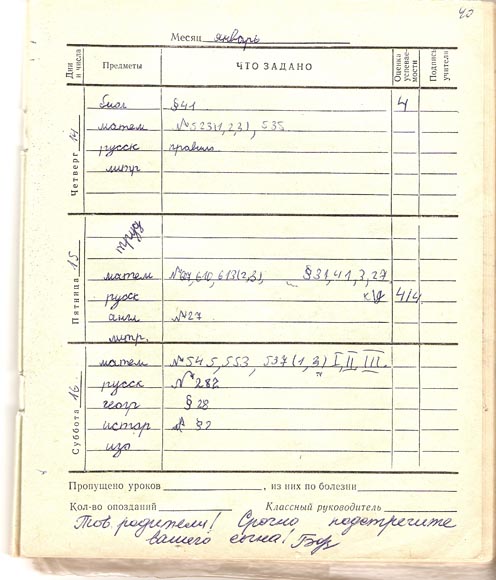 40
Месяц январь
Дни и числа Предметы ЧТО ЗАДАНО Оценка успевае-мости Подпись учителя
Четверг 14
биол §41 4
матем №523(1,2,3), 535
русск правило
литр
Пятница 15
труд
матем 610, 613(2,3), §31,41,3,27
русск 4/4
англ №27
литр.
Суббота 16
матем №545, 553, 537(1,3) I, II, III.
русск №287
геогр §28
истор §2
изо
Пропущено уроков , из них по болезни
Кол-во опозданий Классный руководитель
Тов родители! Срочно подстречите
вашего сына!